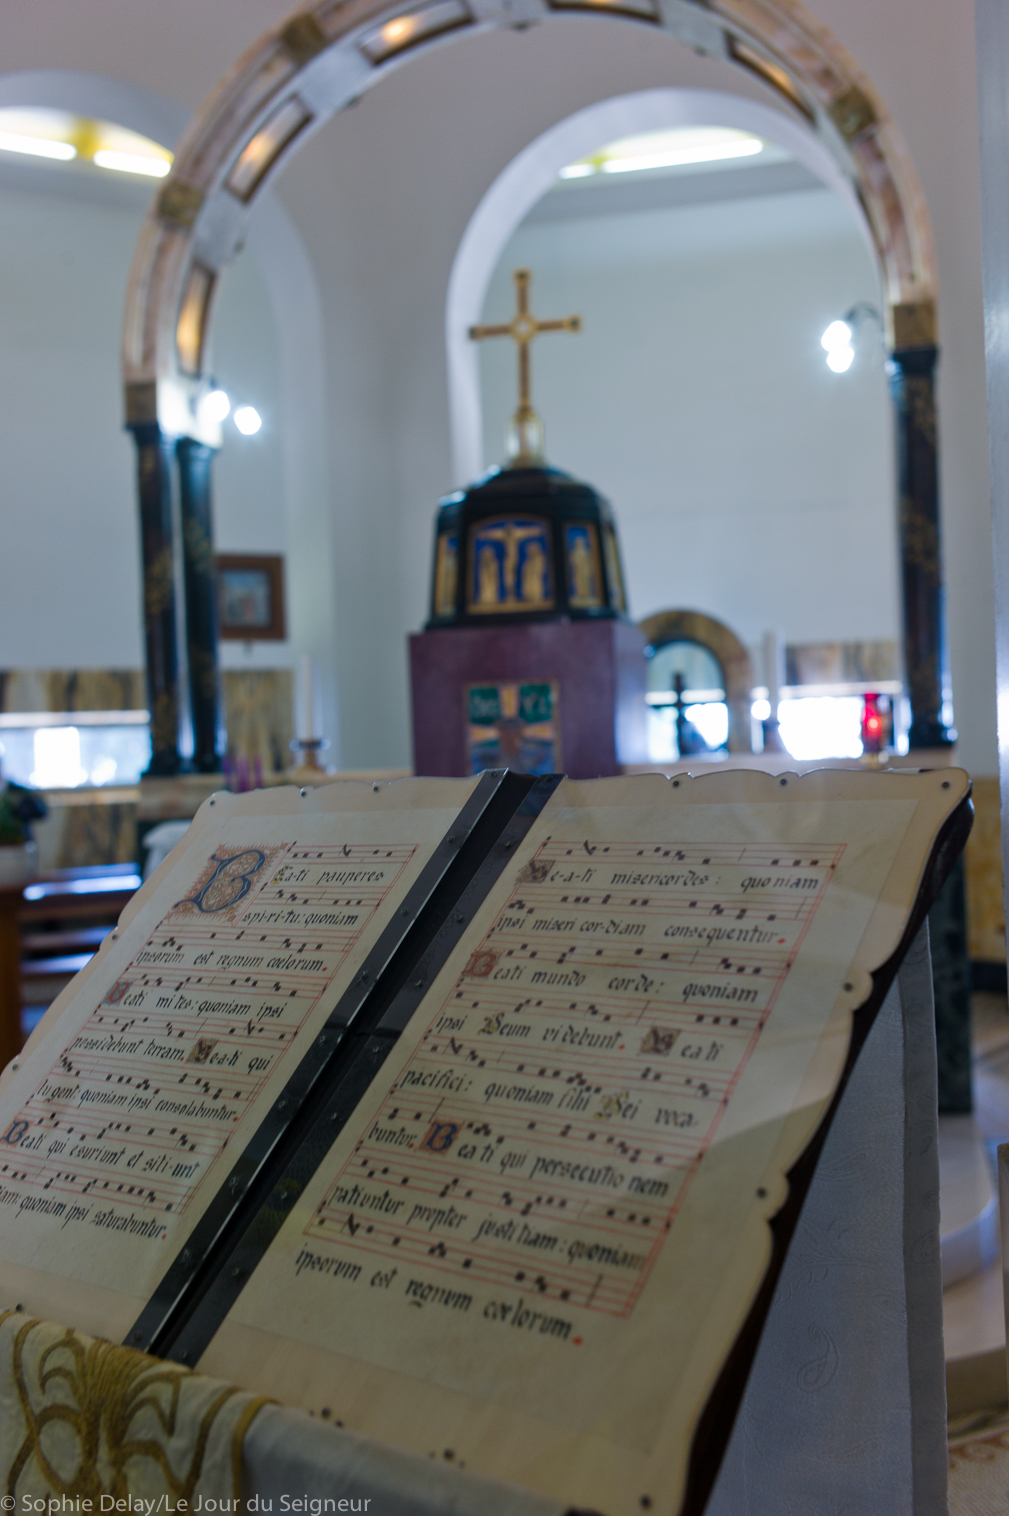 Bea-ti pauperes
spi-ri-tu: quoniam
ipsorum est regnum cœlorum.
Beati mi tes: quoniam ipsi
possidebunt terram. Be-a-ti qui
lugent: quoniam ipsi consolabuntur.
Beati qui esuriunt et siti-unt
quoniam ipsi saturabuntur.
Be-a-ti misericordes: quoniam
ipsi miseri cor-diam consequentur.
Beati mundo corde: quoniam
ipsi Deum videbunt. Beati
pacifici: quoniam filii Dei voca-
buntur. Beati qui persecutio nem
patiuntur propter justi tiam: quoniam
ipsorum est regnum cœlorum.
© Sophie Delay/Le Jour du Seigneur